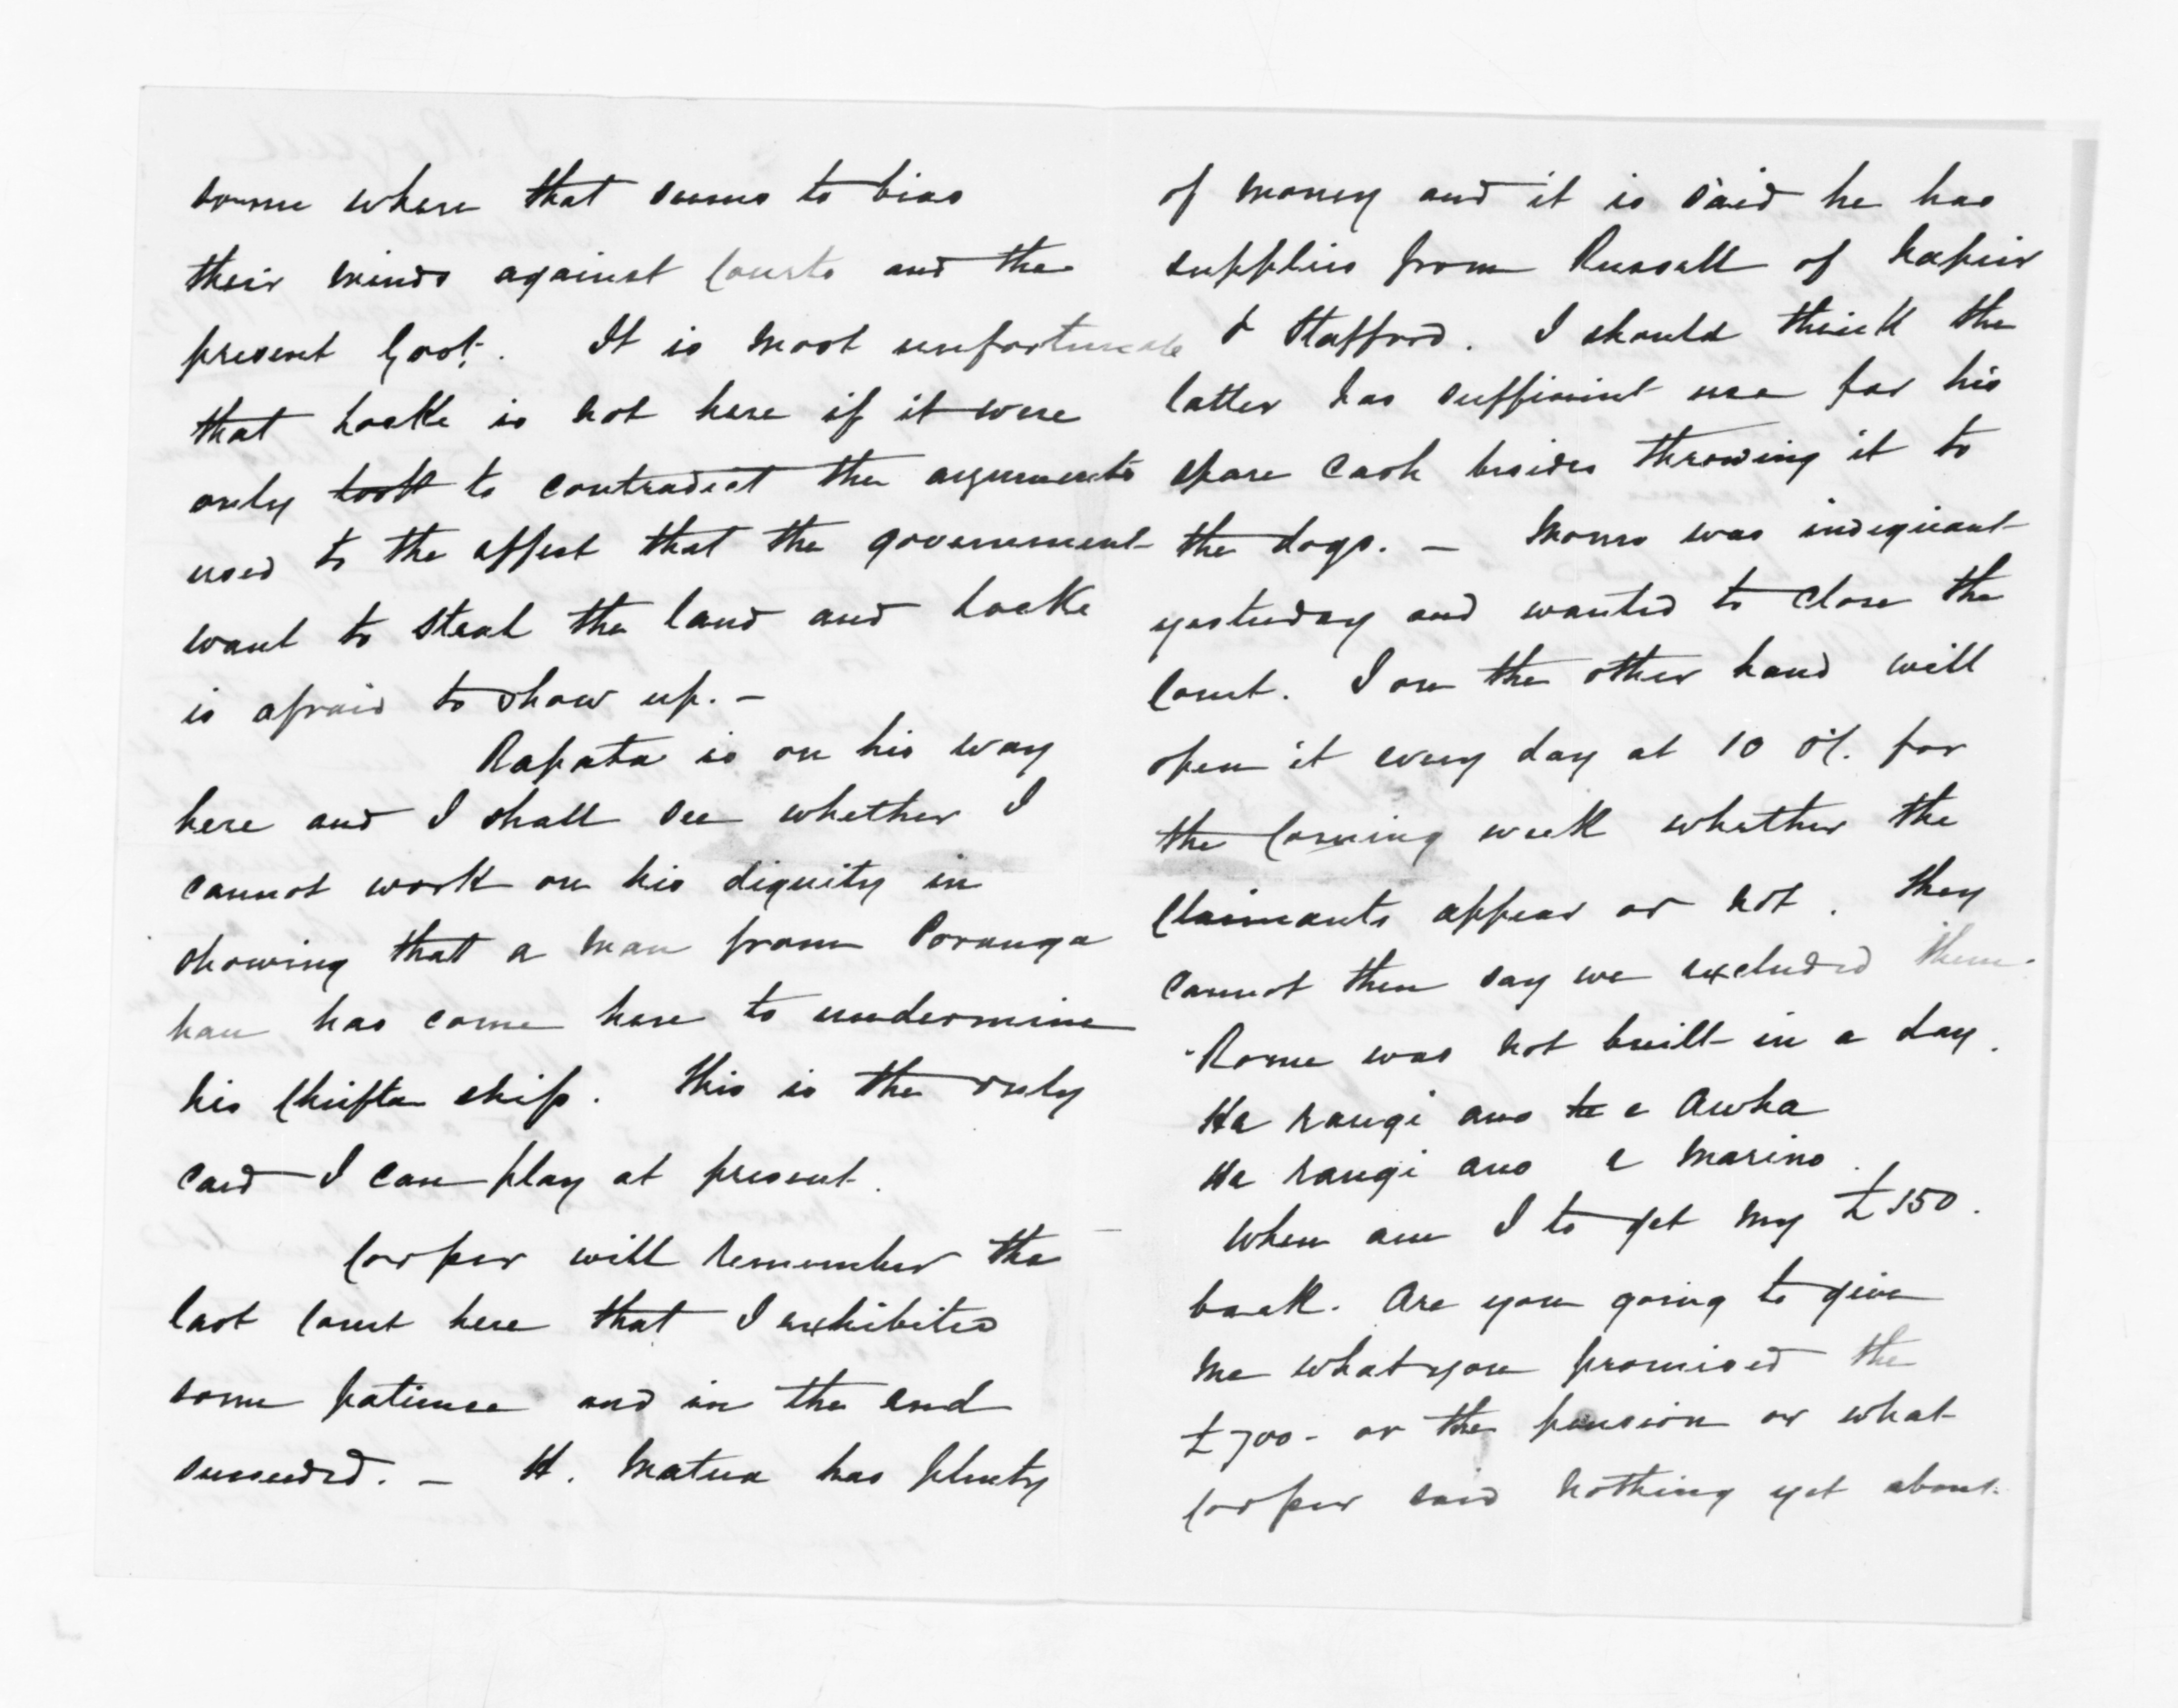 some where that seems to bias
their minds against Courts and the
present Govt. It is most unfortunate
that Locke is not here if it were
only to contradict the arguments
used to the effect that the government
want to steal the land and Locke
is afraid to show up. —
Rapata is on his way
here and I shall see whether I
cannot work on his dignity in
showing that a man from Poranga
hau has come here to undermine
his Chiefta ship. This is the only
card I can play at present.
Cooper will remember the
last Court here that I exhibited
some patience and in the end
succeeded. — H. Matua has plenty
of money and it is said he has
supplies from Russell of Napier
& Stafford. I should think the
latter has sufficient use for his
spare cash besides throwing it to
the dogs. — Monro was indignant
yesterday and wanted to close the
Court. I on the other hand will
open it every day at 10 o'C. for
the coming week whether the
Claimants appear or not. They
cannot then say we excluded them.
"Rome was not built in a day.
He rangi ano te e Awha
He rangi ano e marino.
When am I to get my £150.
back. Are you going to give
me what you promised the
£700- or the pension or what
Cooper said nothing yet about.